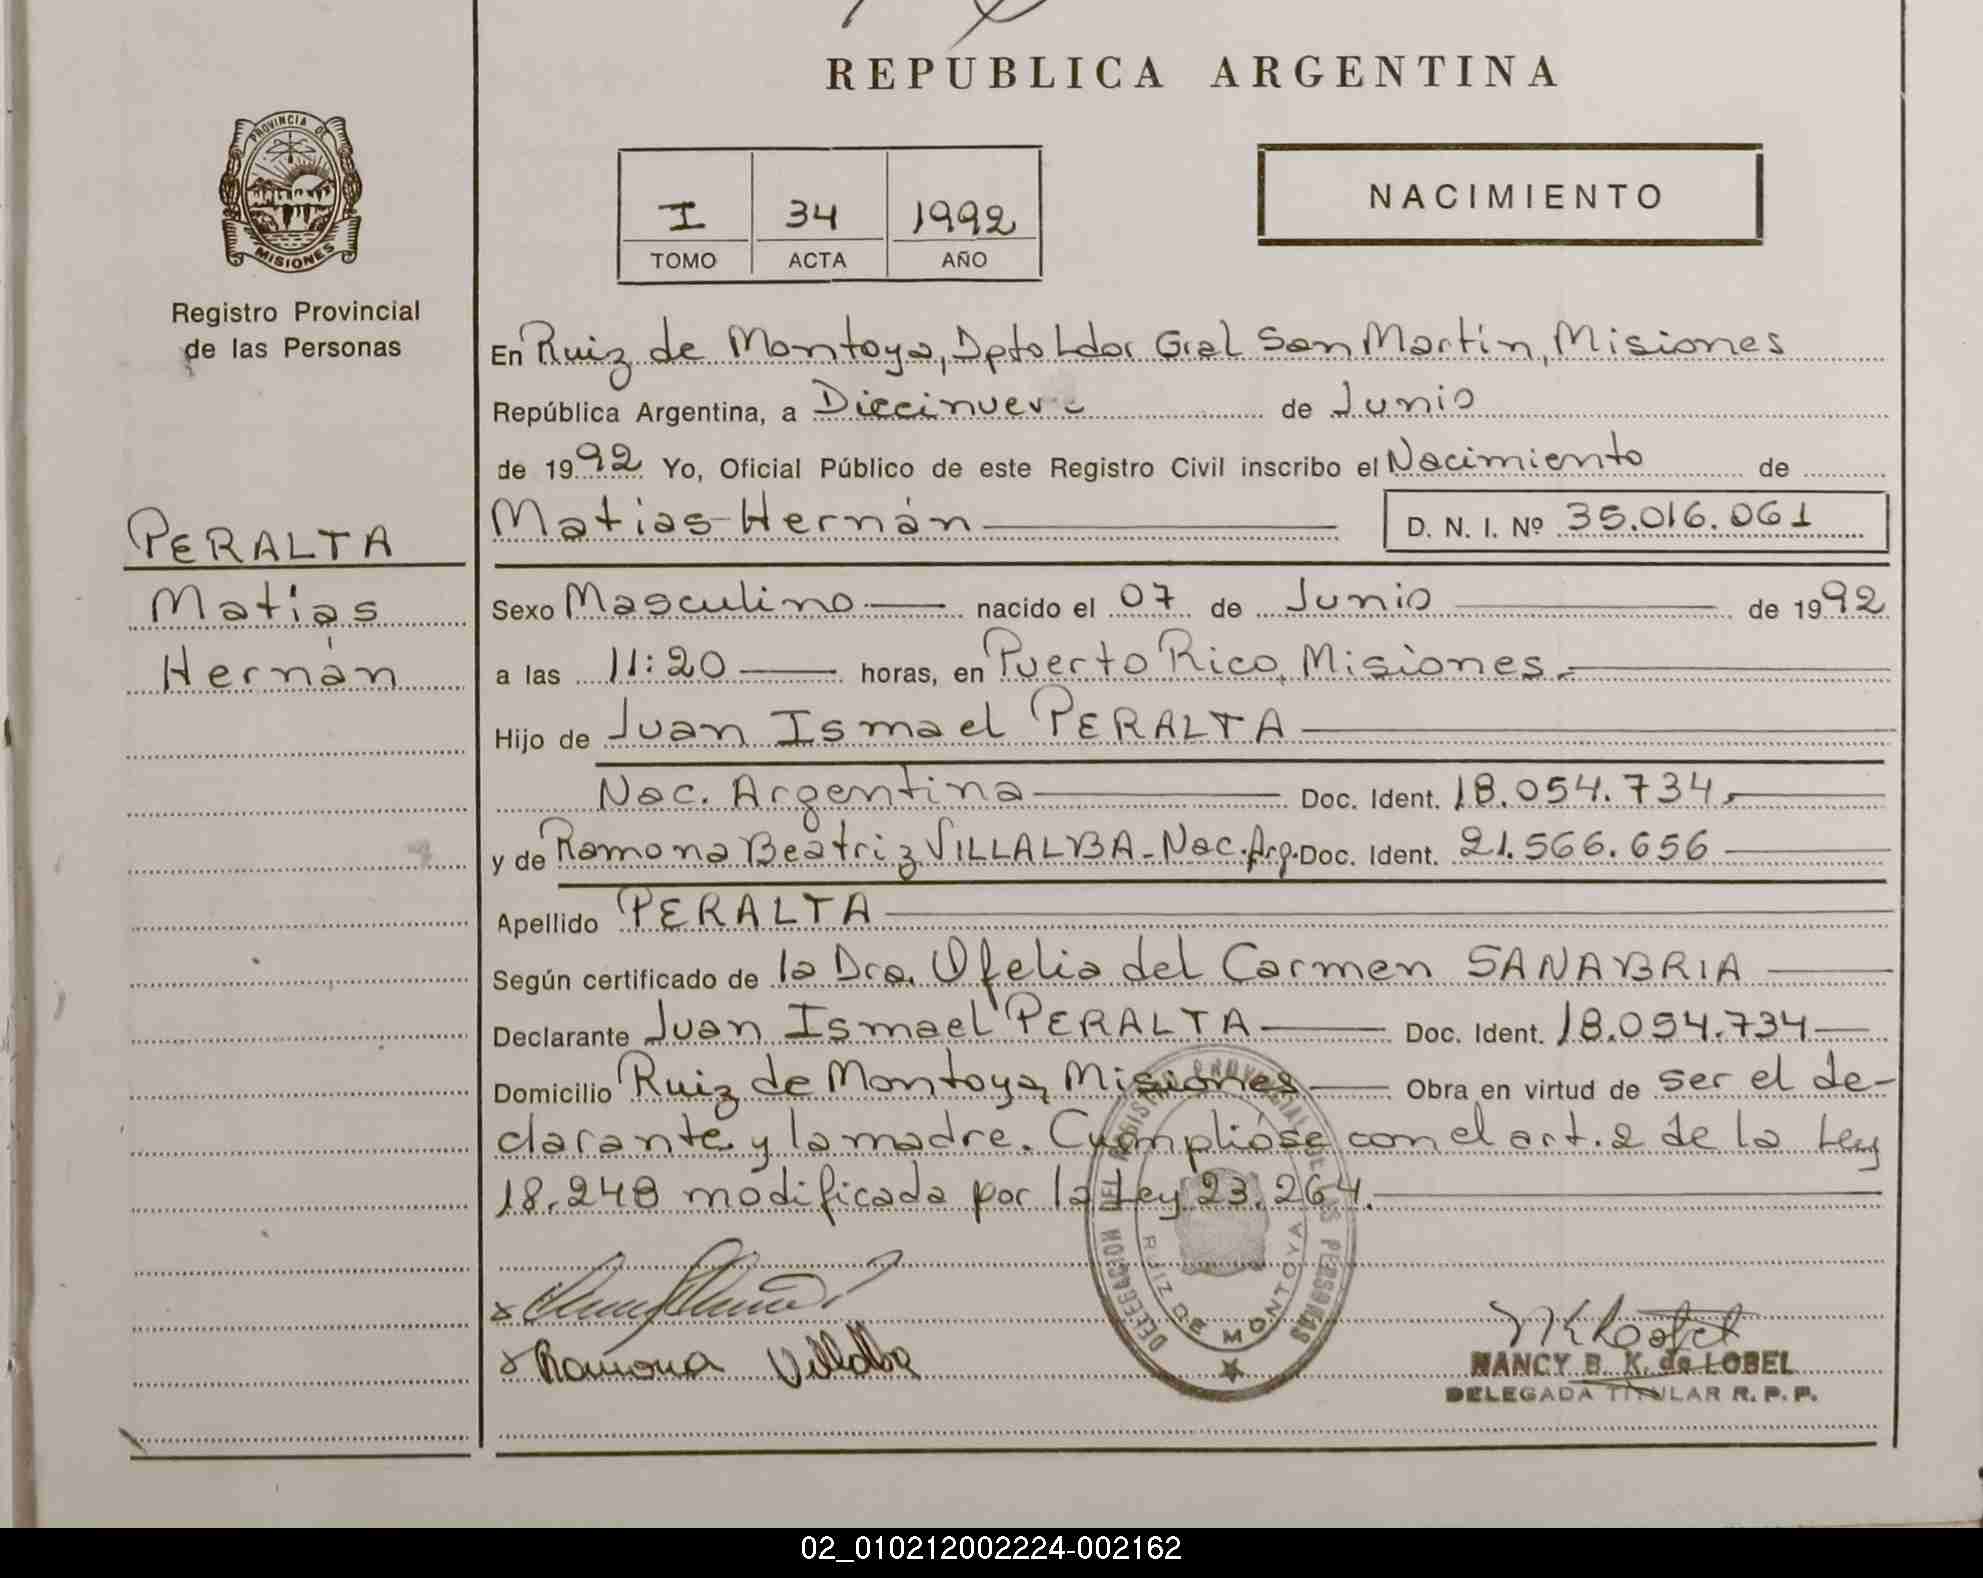 REPUBLICA ARGENTINA
PROVINCIA DE
MISIONES
Registro Provincial
de las Personas
I 34 1992
TOMO ACTA AÑO
NACIMIENTO
En Ruiz de Montoya, Dpto Ldor Gral San Martín, Misiones
República Argentina, a Diecinueve de Junio
de 1992 Yo, Oficial Público de este Registro Civil inscribo el Nacimiento de
Matias Hernán D. N. I. Nº 35.016.061
PERALTA
Matías
Hernán
Sexo Masculino nacido el 07 de Junio de 1992
a las 11:20 horas, en Puerto Rico, Misiones.
Hijo de Juan Ismael PERALTA
Nac. Argentina Doc. Ident. 18.054.734.
y de Ramona Beatriz VILLALBA - Nac. Arg. Doc. Ident. 21.566.656
Apellido PERALTA
Según certificado de la Dra. Ofelia del Carmen SANABRIA
Declarante Juan Ismael PERALTA Doc. Ident. 18.054.734
Domicilio Ruiz de Montoya, Misiones Obra en virtud de ser el de-
clarante y la madre. Cumplióse con el art. 2 de la Ley
18.248 modificada por la Ley 23.264.
DELEGACION DEL REGISTRO PROVINCIAL DE LAS PERSONAS
RUIZ DE MONTOYA
Ramona Villalba
NANCY B. K. de LOBEL
DELEGADA TITULAR R. P. P.
02_010212002224-002162